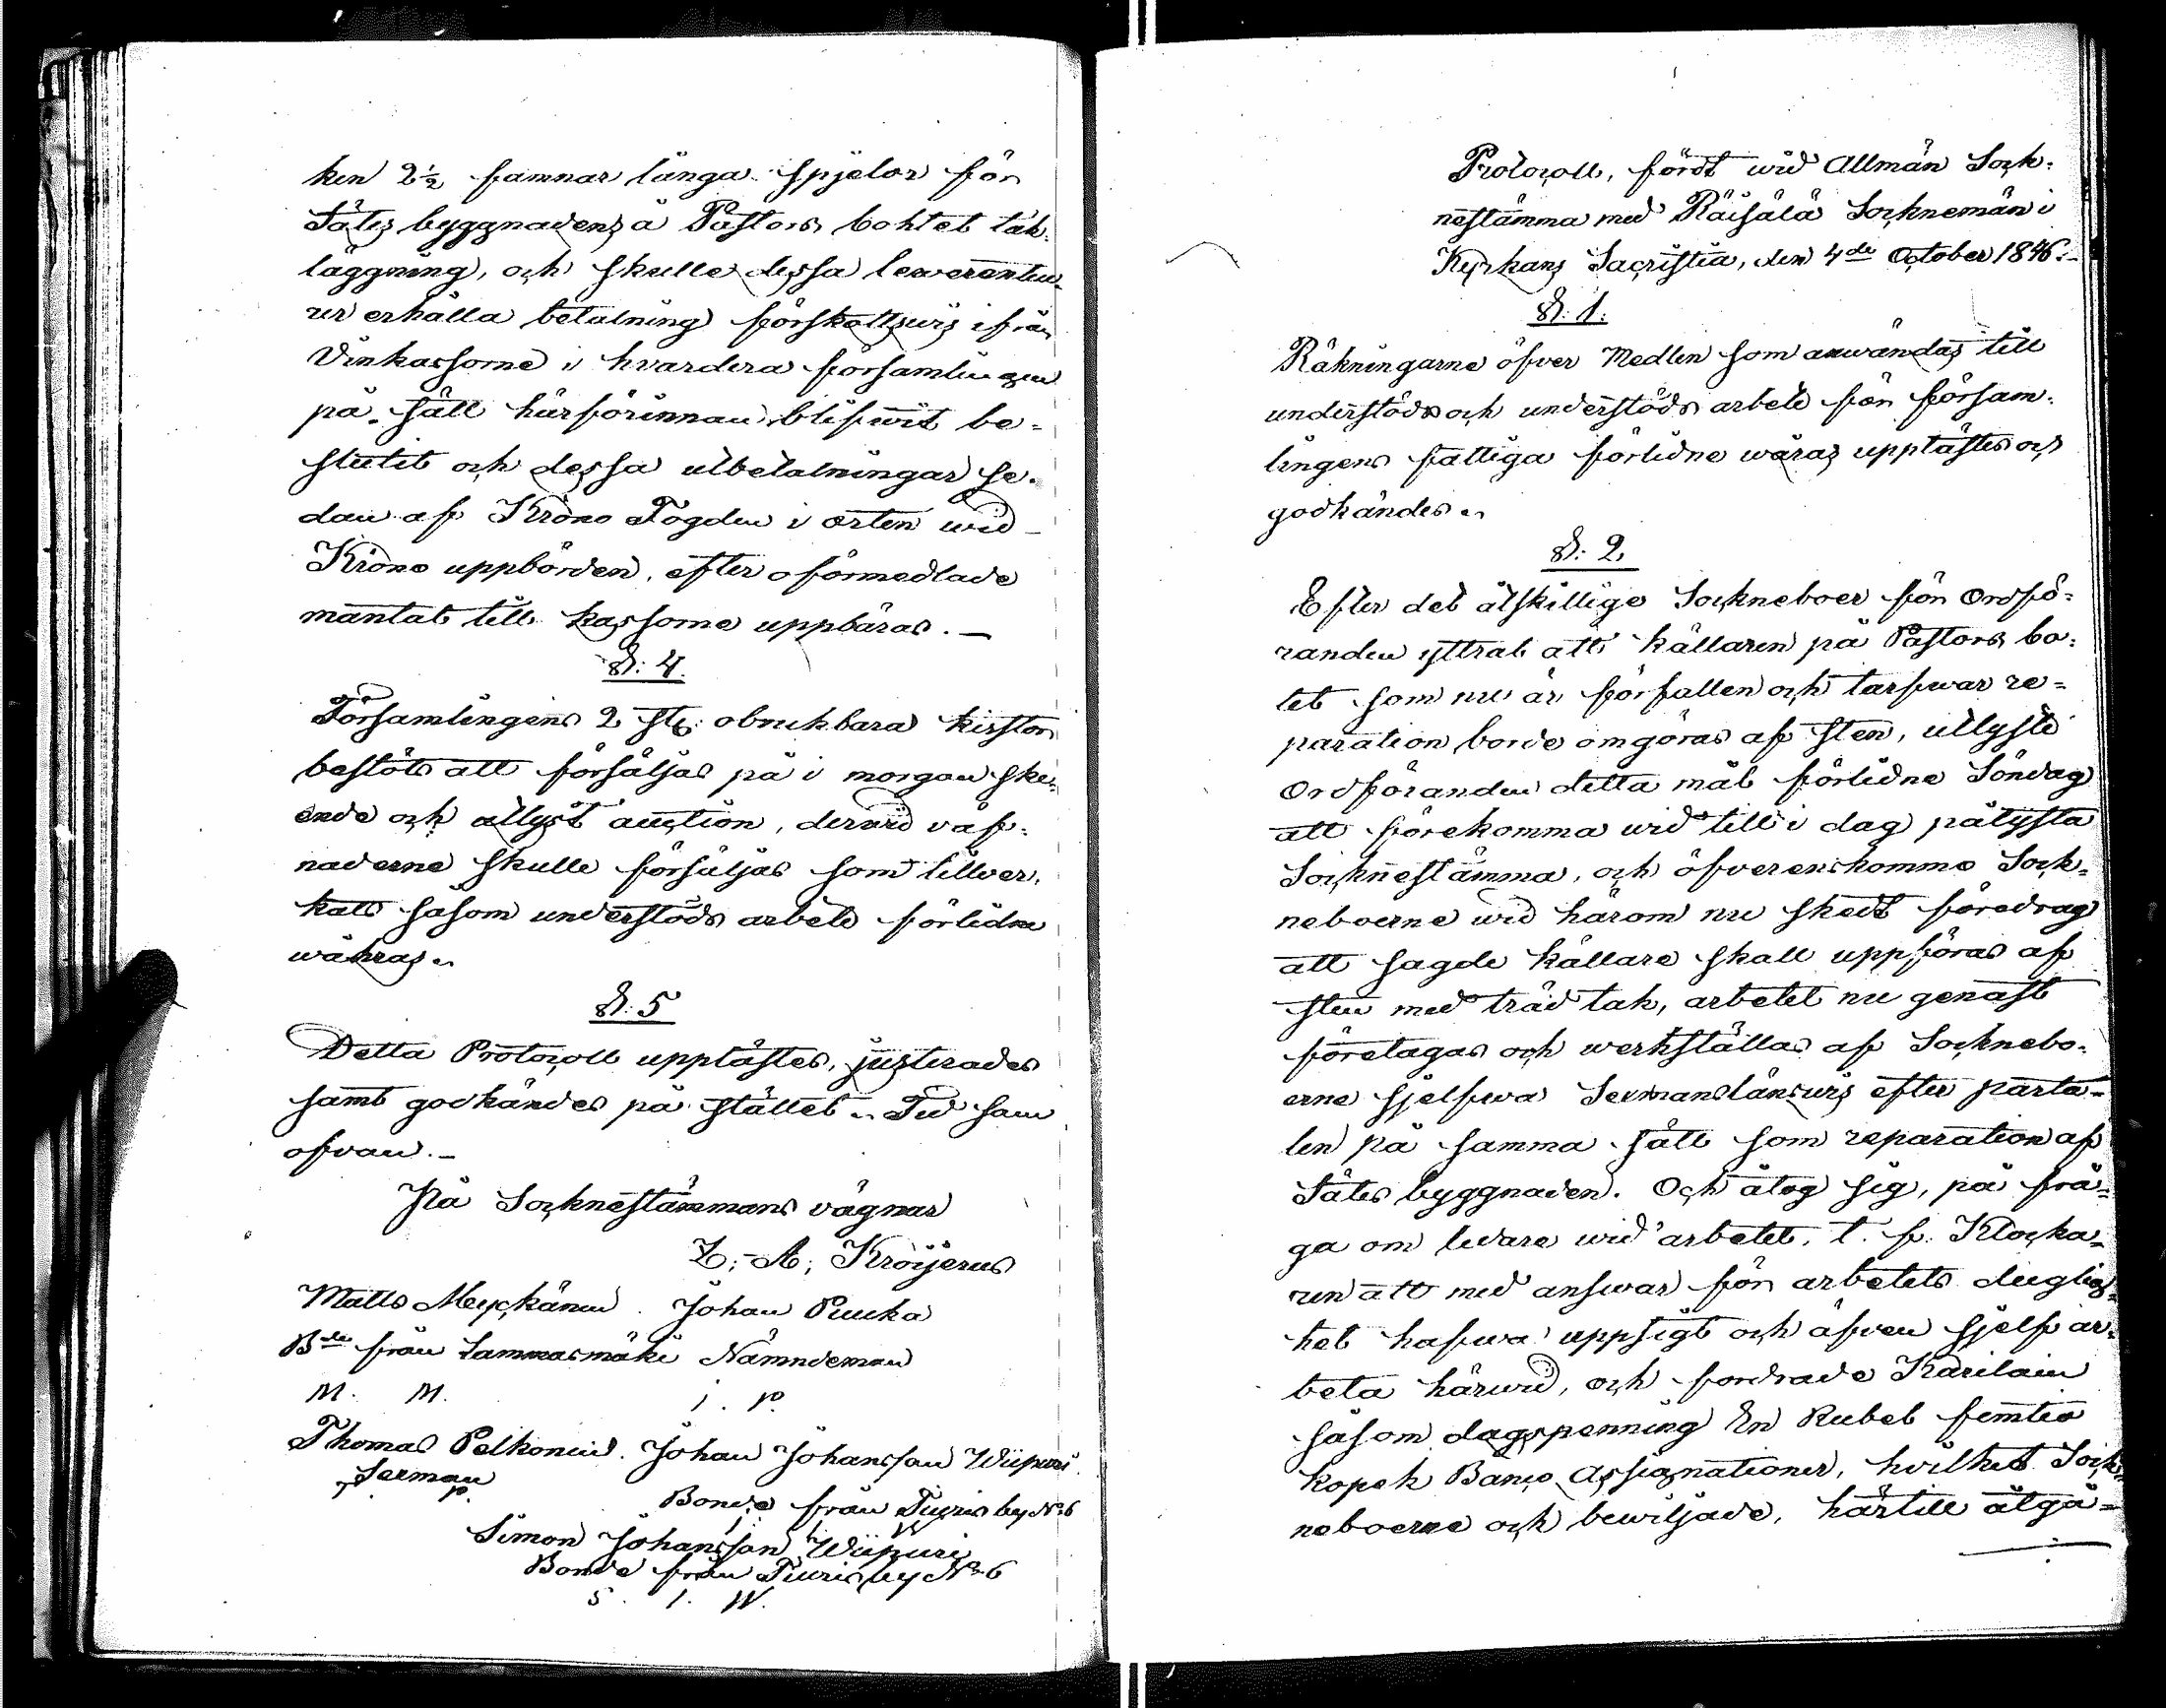 ken 2½ famnar långa spjelor för
Sätes byggnadens å Pastors bohlet tak-
läggning, och skulle dessa leveranteu-
rer erhålla betalning förskottswis ifrån
Vinkassorne i hvardera församlingen
på sätt härförinnan blifwit be=
slutit och dessa utbetalningar se-
dan af Krono Fogden i orten wid
Krono uppbörden, efter oförmedlade
mantal till kassorne uppbäras. —
§: 4.
Församlingens 2 st: obrukbara kistor
beslöts att försäljas på i morgon ske-
ende och utlyst auction, derwid väf-
naderne skulle försäljas som tillver-
kats såsom understöds arbete förlidne
wåhras.
§: 5
Detta Protocoll upplästes, justerades
samt godkändes på stället. Tid som
ofvan. —
På Socknestämmans vägnar
Z: A: Kröijerus
Matts Meyckänen. Johan Pukka
Bde från Lammasmäki Nämndeman
M. M. i. p.
Thomas Pelkonen. Johan Johansson Wiipuri.
Sexman Bonde från Tiuris by No 6
Simon Johansson Wiipuri
Bonde från Tiuris by No 6
S. I. W.
Protocoll, fördt wid Allmän Sock-
nestämma med Räisälä Socknemän i
Kyrkans Sacristia, den 4de October 1846. —
§: 1.
Räkningarne öfver Medlen som anwändas till
understöds och understöds arbete för försam-
lingens fattiga förlidne wåras upplästes och
godkändes.
§: 2.
Efter det åtskillige Sockneboer för Ordfö-
randen yttrat att källaren på Pastors bo-
let som nu är förfallen och tarfwar re-
paration borde omgöras af sten, utlyste
Ordföranden detta mål förlidne Söndag
att förekomma wid till i dag pålysta
Socknestämma, och öfverenskomme Sock-
neboerne wid härom nu skedt föredrag
att sagde källare skall uppföras af
sten med träd tak, arbetet nu genast
företagas och werkställas af Socknebo-
erne sjelfwa Sexmanslänswis efter parta-
len på samma sätt som reparation af
Sätes byggnaden. Och åtog sig, på frå-
ga om ledare wid arbetet, t. f. Klocka-
ren att med answar för arbetets duglig-
het hafwa uppsigt och äfven sjelf ar-
beta härwid, och fordrade Karilain
såsom dagspenning En Rubel femtio
kopek Banco Assignationer, hvilket Sock-
neboerne och bewiljade, härtill åtgå-